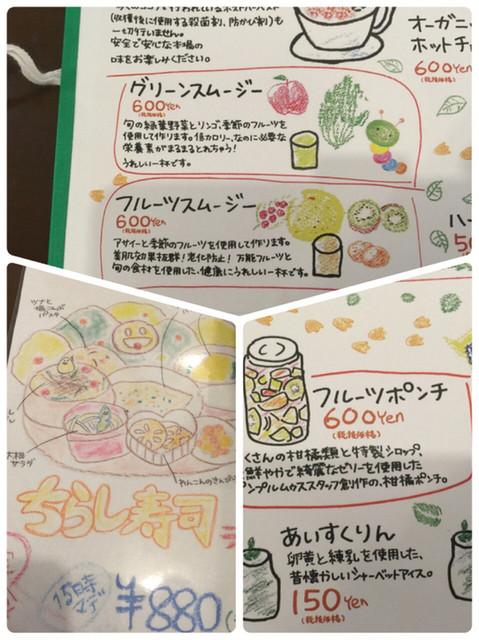 (収穫後に使用する殺菌剤、防かび剤)も
一切行いません。
安全で安心な本場の
味をお楽しみください。
オーガニッ
ホットチョ
600
グリーンスムージー
600Yen
(税抜価格)
旬の緑葉野菜とリンゴ、季節のフルーツを
使用して作ります。低カロリーなのに必要な
栄養素がまるまるとれちゃう!
うれしい一杯です。
フルーツスムージー
600Yen
(税抜価格)
アサイーと季節のフルーツを使用して作ります。
美肌効果抜群!老化防止!万能フルーツと
旬の食材を使用した、健康にうれしい一杯です。
ハー
50
ツナと
塩こんぶ
パスタ
大根
サラダ
れんこんのきんぴら
ちらし寿司
15時
マデ
¥880
フルーツポンチ
600Yen
(税抜価格)
くさんの柑橘類と特製シロップ、
鮮やかで綺麗なゼリーを使用した
ンプルムウススタッフ創作の、柑橘ポンチ。
あいすくりん
卵黄と練乳を使用した、
昔懐かしいシャーベットアイス。
150Yen
(税抜価格)